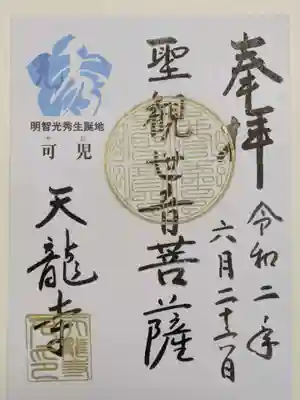 奉拝
令和二年
六月二十
聖観世音菩薩
秀
明智光秀生誕地
かに
可児
天龍寺